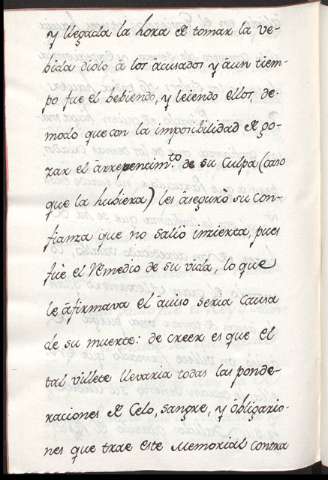 y llegada la hora de tomar la ve-
bida diolo à los àcusados y àun tiem-
po fue el bebiendo, y leiendo ellos, de-
modo que con la imposibilidad de go-
zar el arrepencim.to de su Culpa (caso
que la hubiera) les àseguró su con-
fianza que no salió inzierta, pues
fue el Remedio de su vida, lo que
le àfirmava el àuiso seria Causa
de su muerte: de creer es que el
tal villete llevaria todas las ponde-
raciones de Celo, sangre, y òbligazio-
nes que trae este Memorial contra